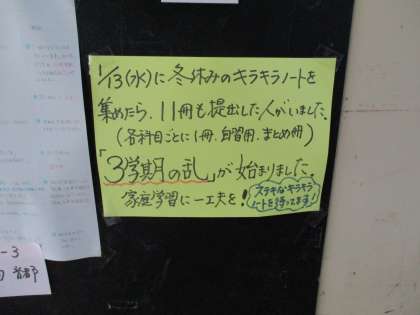 1/13(水)に冬休みのキラキラノートを
集めたら、11冊も提出した人がいました。
(各科目ごとに1冊、自習用、まとめ冊)
「3学期の乱」が始まりました。
家庭学習に一工夫を!
ステキなキラキラ
ノートを待ってます!
-3
首都